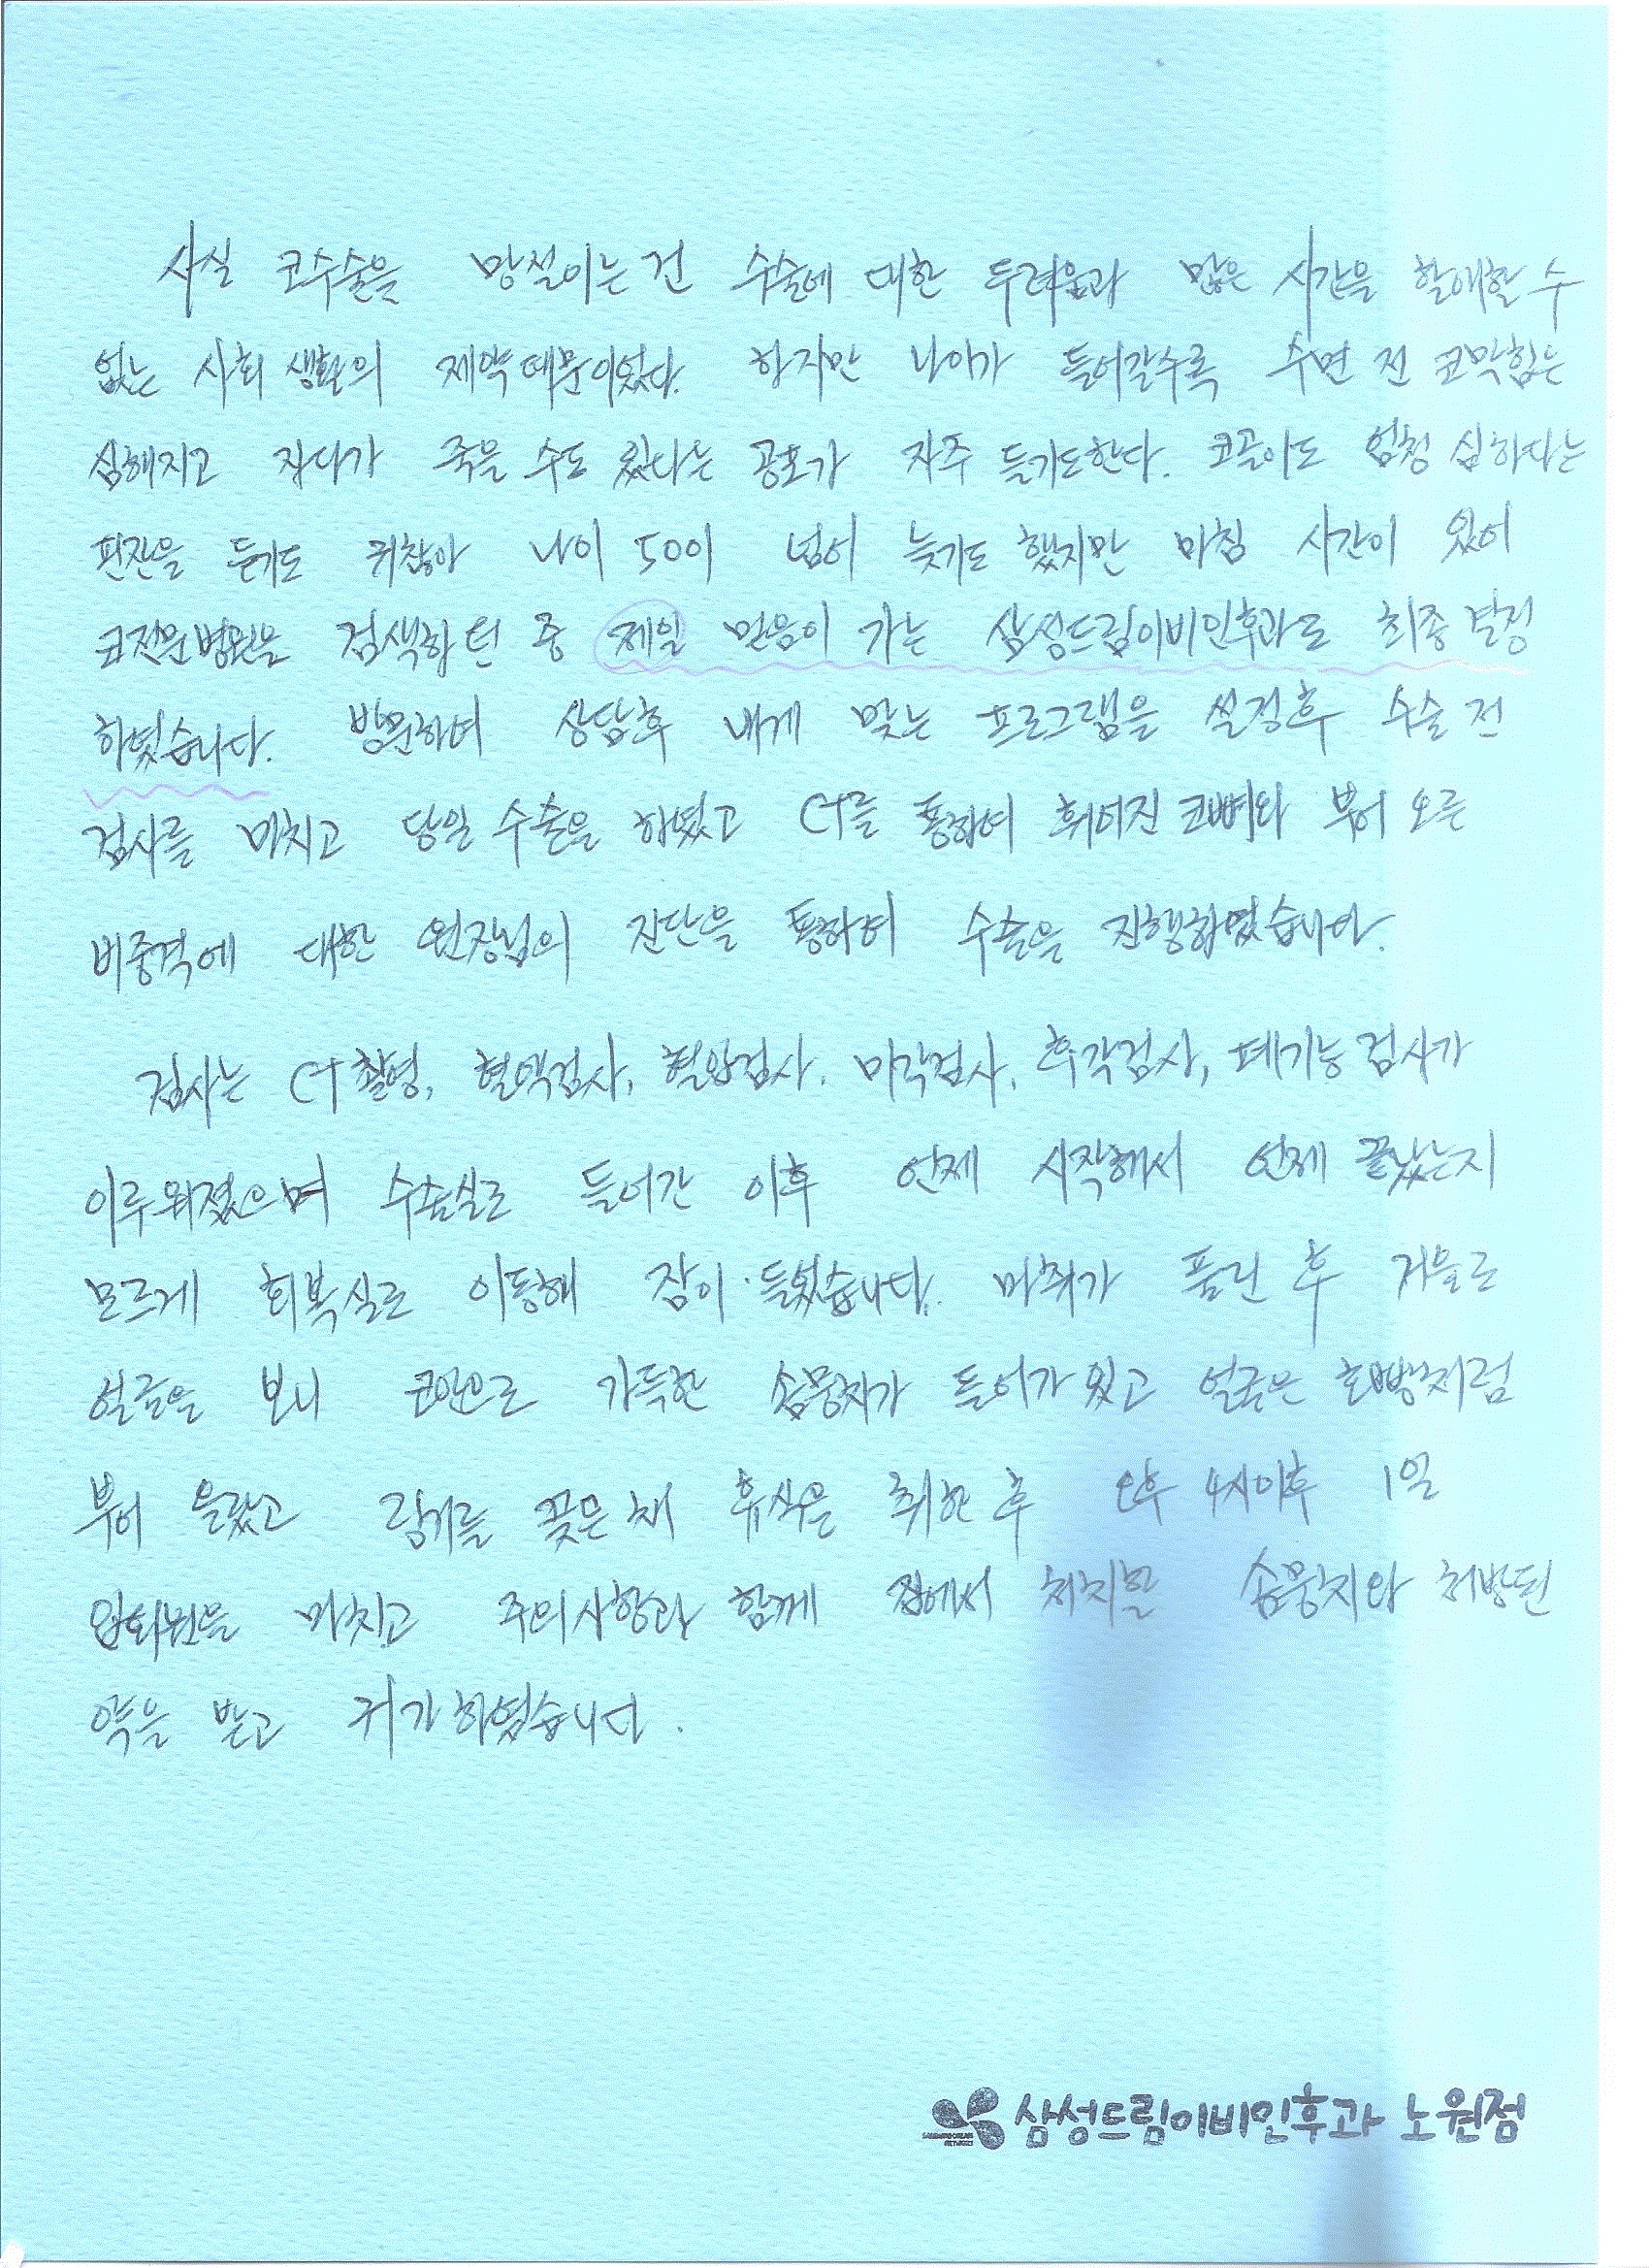 사실 코수술을 망설이는 건 수술에 대한 두려움과 많은 시간을 할애할 수
없는 사회 생활의 제약 때문이었다. 하지만 나이가 들어갈수록 수면 전 코막힘는
심해지고 자다가 죽을 수도 있다는 공포가 자주 들기도한다. 코골이도 엄청 심하다는
핀잔을 듣기도 귀찮아 나이 50이 넘어 늦기도 했지만 마침 시간이 있어
코전문병원을 검색하던 중 제일 믿음이 가는 삼성드림이비인후과로 최종 결정
하였습니다. 방문하여 상담후 내게 맞는 프로그램을 설정후 수술 전
검사를 마치고 당일 수술을 하였고 CT를 통하여 휘어진 코뼈와 부어 오른
비중격에 대한 원장님의 진단을 통하여 수술을 진행하였습니다.
검사는 CT촬영, 혈액검사, 혈압검사, 미각검사, 후각검사, 폐기능 검사가
이루워졌으며 수술실로 들어간 이후 언제 시작해서 언제 끝났는지
모르게 회복실로 이동해 잠이 들었습니다. 마취가 풀린 후 거울로
얼굴을 보니 코안으로 가득한 솜뭉치가 들어가 있고 얼굴은 호빵처럼
부어 올랐고 링거를 꽂은 채 휴식을 취한 후 오후 4시이후 1일
입퇴원을 마치고 주의사항과 함께 집에서 처치할 솜뭉치와 처방된
약을 받고 귀가하였습니다.
삼성드림이비인후과 노원점